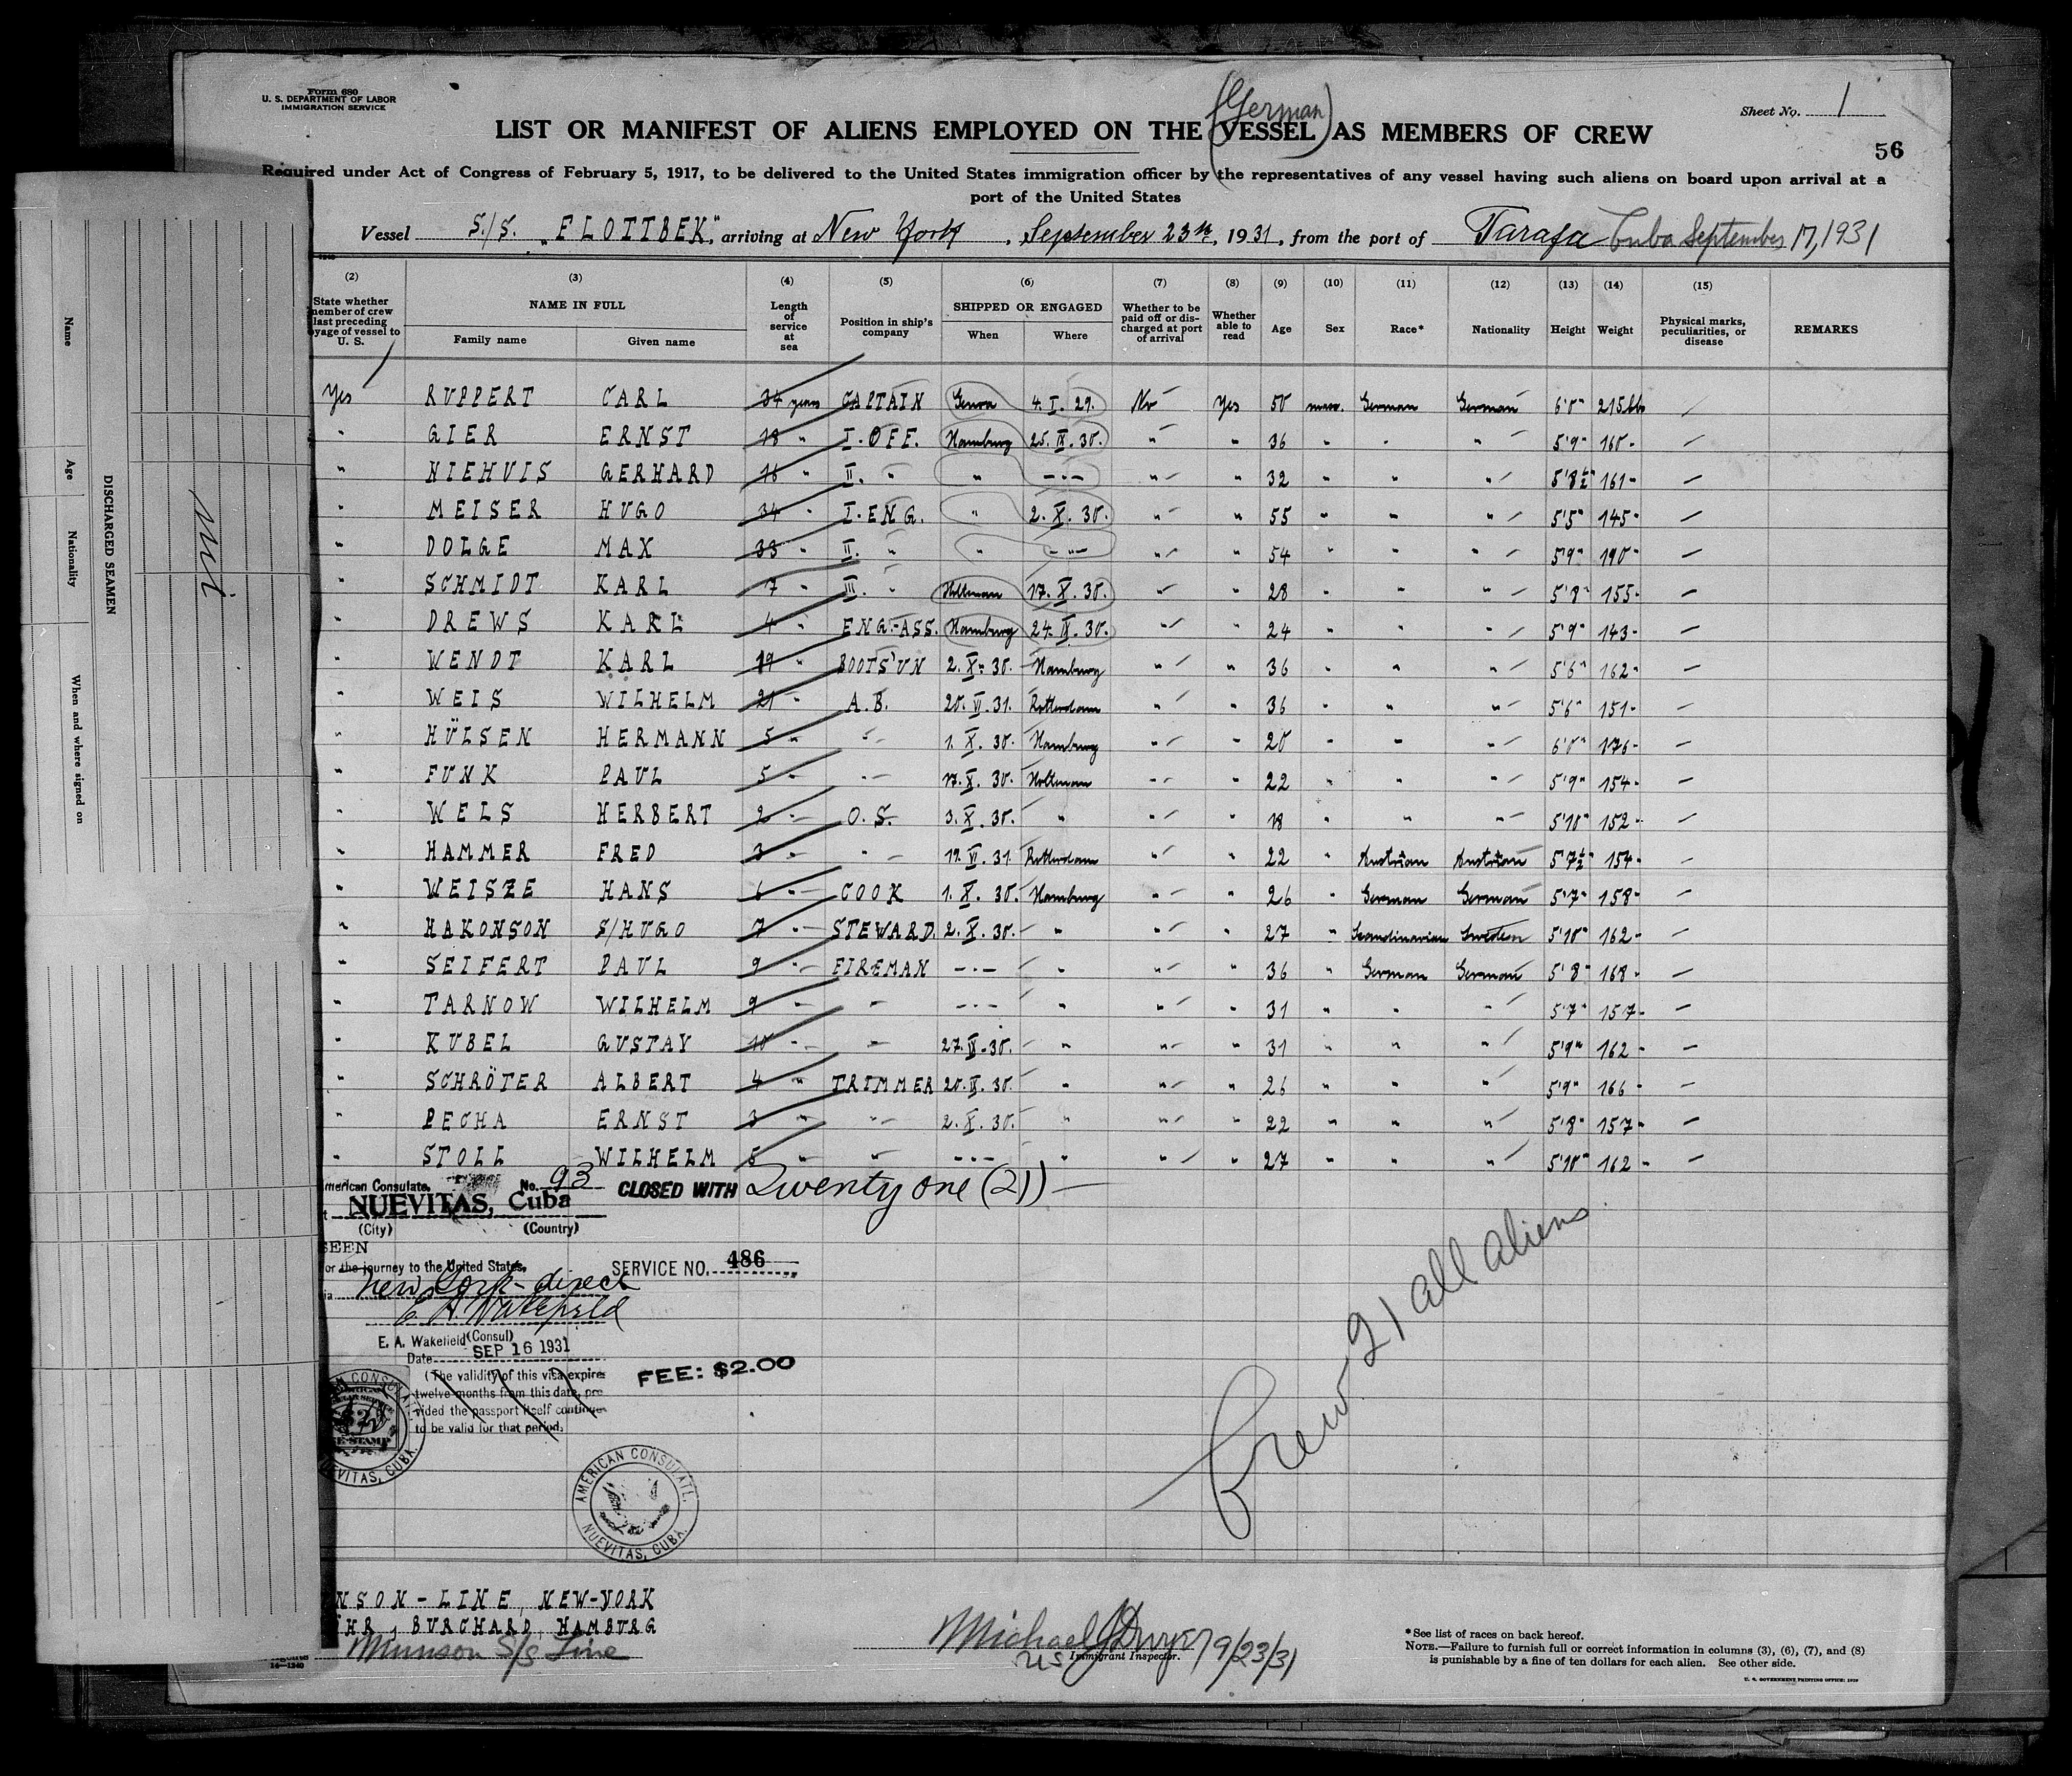 Form 680
U. S. DEPARTMENT OF LABOR
IMMIGRATION SERVICE
Sheet No. 1
(German)
LIST OR MANIFEST OF ALIENS EMPLOYED ON THE VESSEL AS MEMBERS OF CREW
56
Required under Act of Congress of February 5, 1917, to be delivered to the United States immigration officer by the representatives of any vessel having such aliens on board upon arrival at a
port of the United States
Vessel S./S. „FLOTTBEK", arriving at New York, September 23th, 1931, from the port of Tarafa Cuba September 17, 1931
(2) (3) (4) (5) (6) (7) (8) (9) (10) (11) (12) (13) (14) (15)
State whether member of crew last preceding voyage of vessel to U. S.
NAME IN FULL
Family name Given name
Length of service at sea
Position in ship's company
SHIPPED OR ENGAGED
When Where
Whether to be paid off or discharged at port of arrival
Whether able to read
Age Sex Race* Nationality Height Weight
Physical marks, peculiarities, or disease
REMARKS
Yes RUPPERT CARL 34 years CAPTAIN Genoa 4. I. 29. No Yes 50 German German 6'0" 215 lb
" GIER ERNST 18 " I. OFF. Hamburg 25. IX. 30. " " 36 " " " 5'9" 160 "
" NIEHUIS GERHARD 16 " II. " " -"- " " 32 " " " 5'8½" 161 "
" MEISER HUGO 34 " I. ENG. " 2. X. 30. " " 55 " " " 5'5" 145 "
" DOLGE MAX 33 " II. " " -"- " " 54 " " " 5'9" 190 "
" SCHMIDT KARL 7 " III. " Holtenau 17. X. 30. " " 28 " " " 5'8" 155 "
" DREWS KARL 4 " ENG.-ASS. Hamburg 24. IX. 30. " " 24 " " " 5'9" 143 "
" WENDT KARL 19 " BOOTS'UN 2. X. 30. Hamburg " " 36 " " " 5'6" 162 "
" WEIS WILHELM 21 " A.B. 20. VI. 31. Rotterdam " " 36 " " " 5'6" 151 "
" HÜLSEN HERMANN 5 " " 1. X. 30. Hamburg " " 20 " " " 6'0" 176 "
" FUNK PAUL 5 " " 17. X. 30. Holtenau " " 22 " " " 5'9" 154 "
" WELS HERBERT 2 " O.S. 3. X. 30. " " " 18 " " " 5'10" 152 "
" HAMMER FRED 3 " " 19. VI. 31 Rotterdam " " 22 " Austrian Austrian 5'7½" 154 "
" WEISZE HANS 6 " COOK 1. X. 30. Hamburg " " 26 " German German 5'7" 158 "
" HAKONSON S/HUGO 7 " STEWARD. 2. X. 30. " " " 27 " Scandinavian Sweden 5'10" 162 "
" SEIFERT PAUL 9 " FIREMAN -"- " " " 36 " German German 5'8" 168 "
" TARNOW WILHELM 9 " " -"- " " " 31 " " " 5'7" 157 "
" KUBEL GUSTAV 10 " " 27. IX. 30. " " " 31 " " " 5'9" 162 "
" SCHRÖTER ALBERT 4 " TRIMMER 20. IX. 30. " " " 26 " " " 5'9" 166 "
" PECHA ERNST 3 " " 2. X. 30. " " " 22 " " " 5'8" 157 "
" STOLL WILHELM " " -"- " " " 27 " " " 5'10" 162 "
American Consulate, No. 93 CLOSED WITH Twenty one (21)
NUEVITAS, Cuba
(City) (Country)
SEEN
for the journey to the United States,
SERVICE NO. 486
via New York direct
E A Wakefield
E. A. Wakefield (Consul)
Date SEP 16 1931
FEE: $2.00
(The validity of this visa expires
twelve months from this date, pro
vided the passport itself continue
to be valid for that period.
AMERICAN CONSULATE
NUEVITAS, CUBA.
AMERICAN CONSULATE.
NUEVITAS, CUBA.
Crew 21 all aliens
NSON-LINE, NEW-YORK
HR, BURCHARD, HAMBURG
Munson S/S Line
14—1240
Michael J Dwyer 9/23/31
US Immigrant Inspector.
*See list of races on back hereof.
NOTE.—Failure to furnish full or correct information in columns (3), (6), (7), and (8)
is punishable by a fine of ten dollars for each alien. See other side.
U. S. GOVERNMENT PRINTING OFFICE: 1929
DISCHARGED SEAMEN
Name
Age
Nationality
When and where signed on